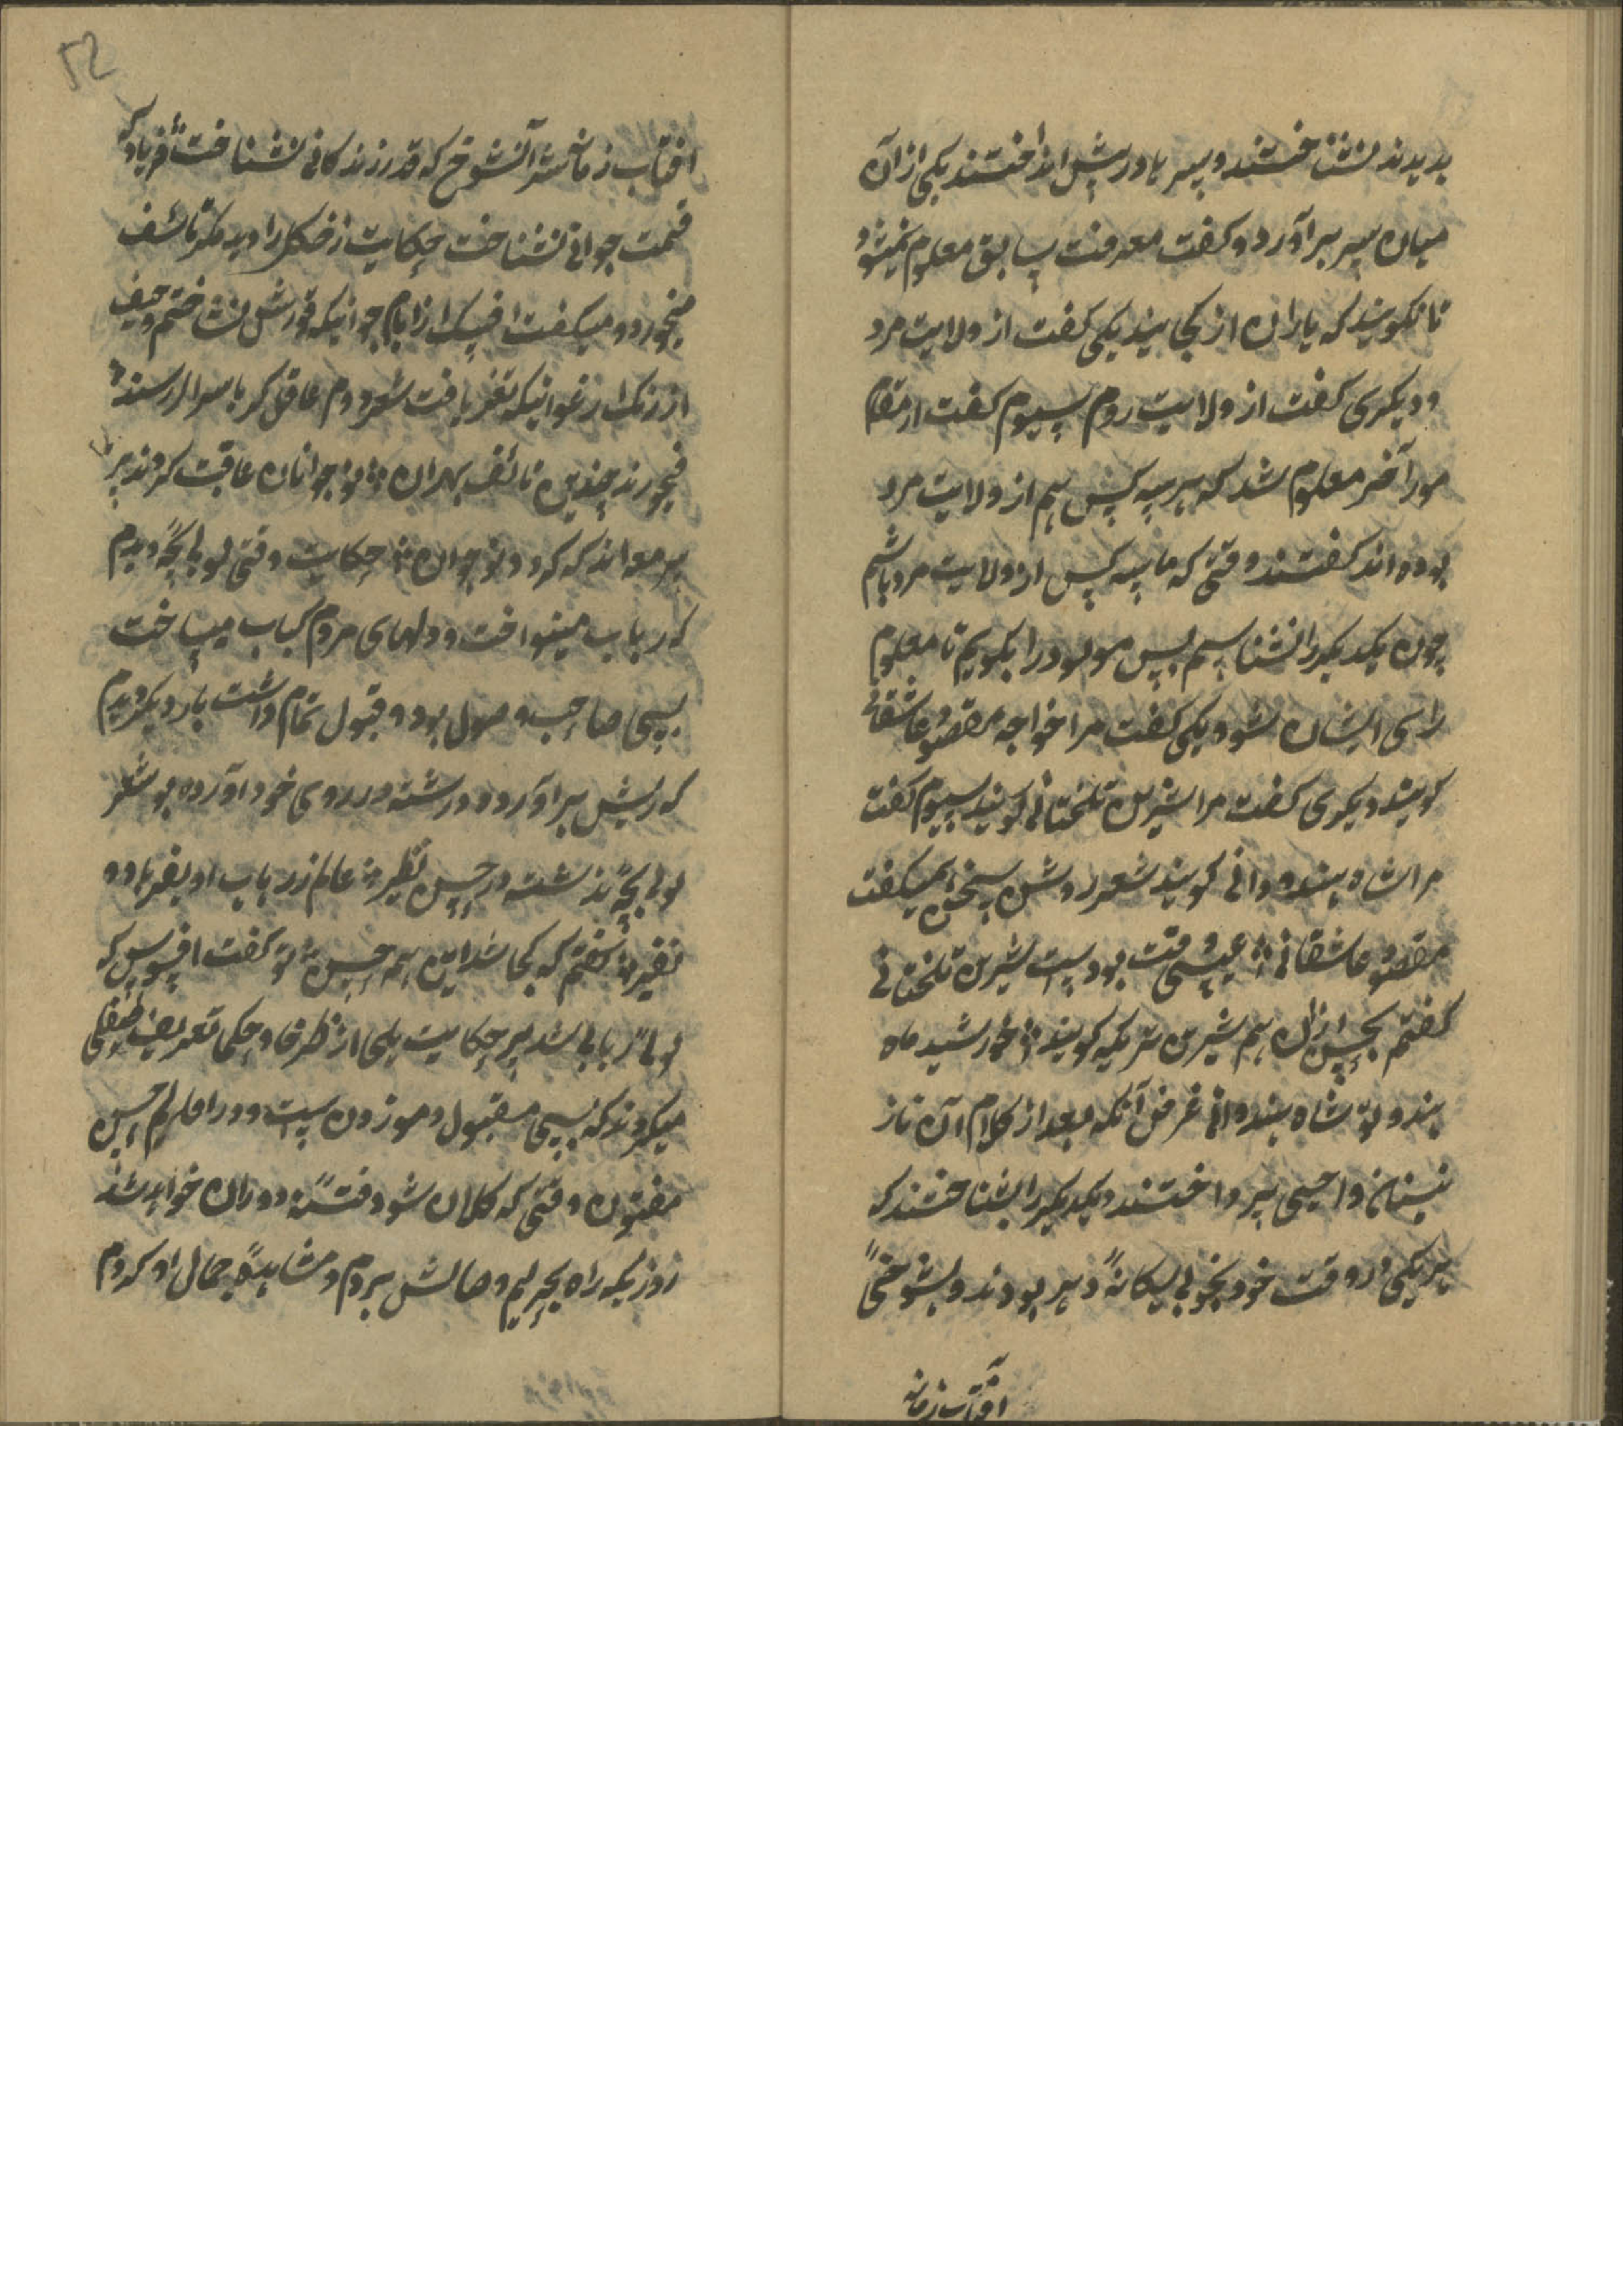 بدیدند نشناختند و سر ها در پیش انداختند یکی از آن
میان سر برآورد و گفت معرفت سابق معلوم نمیشود
تا نگویند که یاران از کجایند یکی گفت از ولایت مرد
و دیگری گفت از ولایت روم سیوم گفت از مقام
مور آخر معلوم شد که هر سه کس هم از ولایت مرد
بوده اند گفتند وقتی که ما سه کس از ولایت مرد باشیم
چون یکدیگر را نشناسیم پس مولود را بگویم تا معلوم
رای ایشان شود یکی گفت مرا خواجه مقصود عاشقانی
گویند دیگری گفت مرا شیرین تلختانی گویند سیوم گفت
مرا شاه هندوانی گویند شعر روشن سخن میگفت
مقصود عاشقانی عیشی وقت بودست شیرین تلختانی
گفتم بحسن ازان هم شیرین تر یکه گویند خورشید ماه
هندو تو شاه هندوانی غرض آنکه بعد از کلام آن ناز
نینان واحسی پرداختند و یکدیگر را بشناختند که
هر یکی در وقت خود بخوبی یگانه دهر بودند و بشوخی
آفتاب زمانه
۵۲
افتاب زمانه شد آنشوخ که قدر زندگانی نشناخت فریاد که
قیمت جوانی نشناخت حکایت زخکل را دیدم که تاسف
میخورد و میگفت افسوس از ایام جوانیکه قدرش نشناختم و حیف
از رنگ ارغوانیکه تغیر یافت شعر دوم عاقل گر باسرار رسند
میخورند چندین تاسف بهر آن نوجوانان عاقبت گردند پیر
پیر معاند که گردد نوجوان حکایت وقتی لولی بچه دیدم
که رباب مینواخت و دلهای مردم کباب میساخت
بسی صاحب وصول بود و قبول تمام داشت بار دیگر دیدم
که ریش برآورده و رشته در روی خود آورده بود شعر
لولی بچه نداشت در حسن نظیر عالم ز رباب او بفریاد و
نفیر گفتم که کجا شد این همه حسن تو گفت افسوس که
لولی ربابی شد پیر حکایت یکی از ظرفا و حکما تعریف طفلی
میکردند که بسی مقبول و موزون است و در اقلیم حسن
مفتون وقتی که کلان شود فتنه دوران خواهد شد
روزیکه راه بحریم وصالش بردم و مشاهده جمال او کردم